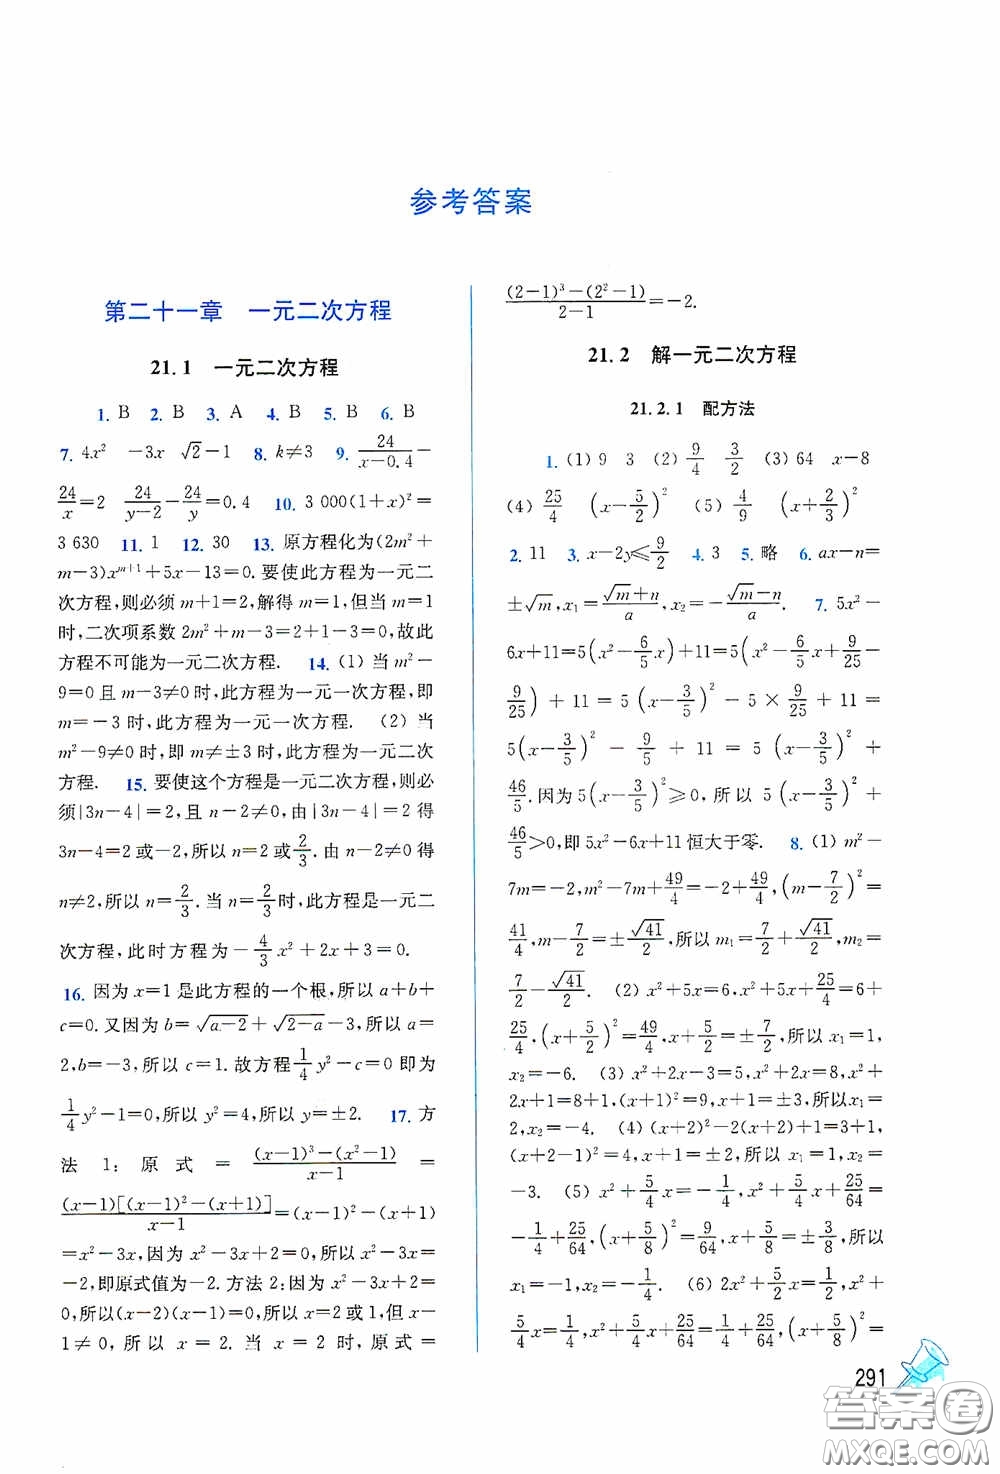 参考答案
第二十一章　一元二次方程
21.1　一元二次方程
1. B　2. B　3. A　4. B　5. B　6. B
7. 4x²　-3x　√2-1　8. k≠3　9. 24/(x-0.4)-
24/x=2　24/(y-2)-24/y=0.4　10. 3 000(1+x)²=
3 630　11. 1　12. 30　13. 原方程化为(2m²+
m-3)x^(m+1)+5x-13=0.要使此方程为一元二
次方程,则必须 m+1=2,解得 m=1,但当 m=1
时,二次项系数 2m²+m-3=2+1-3=0,故此
方程不可能为一元二次方程.　14. (1) 当 m²-
9=0 且 m-3≠0 时,此方程为一元一次方程,即
m=-3 时,此方程为一元一次方程.　(2) 当
m²-9≠0 时,即 m≠±3 时,此方程为一元二次
方程.　15. 要使这个方程是一元二次方程,则必
须|3n-4|=2,且 n-2≠0,由|3n-4|=2 得
3n-4=2或-2,所以 n=2或2/3.由 n-2≠0 得
n≠2,所以 n=2/3.当 n=2/3时,方程是一元二
次方程,此时方程为-4/3x²+2x+3=0.
16. 因为 x=1 是此方程的一个根,所以 a+b+
c=0.又因为 b=√(a-2)+√(2-a)-3,所以 a=
2,b=-3,所以 c=1.故方程1/4y²-c=0 即为
1/4y²-1=0,所以 y²=4,所以 y=±2.　17. 方
法 1:原式=((x-1)³-(x²-1))/(x-1)=
((x-1)[(x-1)²-(x+1)])/(x-1)=(x-1)²-(x+1)
=x²-3x,因为 x²-3x+2=0,所以 x²-3x=
-2,即原式值为-2.方法 2:因为 x²-3x+2=
0,所以(x-2)(x-1)=0,所以 x=2 或 1,但 x-
1≠0,所以 x=2.当 x=2 时,原式=
((2-1)³-(2²-1))/(2-1)=-2.
21.2　解一元二次方程
21.2.1　配方法
1. (1) 9　3　(2) 9/4　3/2　(3) 64　x-8
(4) 25/4　(x-5/2)²　(5) 4/9　(x+2/3)²
2. 11　3. x-2y≤9/2　4. 3　5. 略　6. ax-n=
±√m,x₁=(√m+n)/a,x₂=-(√m-n)/a.　7. 5x²-
6x+11=5(x²-6/5x)+11=5(x²-6/5x+9/25-
9/25)+11=5(x-3/5)²-5×9/25+11=
5(x-3/5)²-9/5+11=5(x-3/5)²+
46/5.因为 5(x-3/5)²≥0,所以 5(x-3/5)²+
46/5>0,即 5x²-6x+11 恒大于零.　8. (1) m²-
7m=-2,m²-7m+49/4=-2+49/4,(m-7/2)²=
41/4,m-7/2=±√41/2,所以 m₁=7/2+√41/2,m₂=
7/2-√41/2.　(2) x²+5x=6,x²+5x+25/4=6+
25/4,(x+5/2)²=49/4,x+5/2=±7/2,所以 x₁=1,
x₂=-6.　(3) x²+2x-3=5,x²+2x=8,x²+
2x+1=8+1,(x+1)²=9,x+1=±3,所以x₁=
2,x₂=-4.　(4) (x+2)²-2(x+2)+1=3+1,
(x+2-1)²=4,x+1=±2,所以 x₁=1,x₂=
-3.　(5) x²+5/4x=-1/4,x²+5/4x+25/64=
-1/4+25/64,(x+5/8)²=9/64,x+5/8=±3/8,所以
x₁=-1,x₂=-1/4.　(6) 2x²+5/2x=1/2,x²+
5/4x=1/4,x²+5/4x+25/64=1/4+25/64,(x+5/8)²=
291
答案圈
MXQE.COM